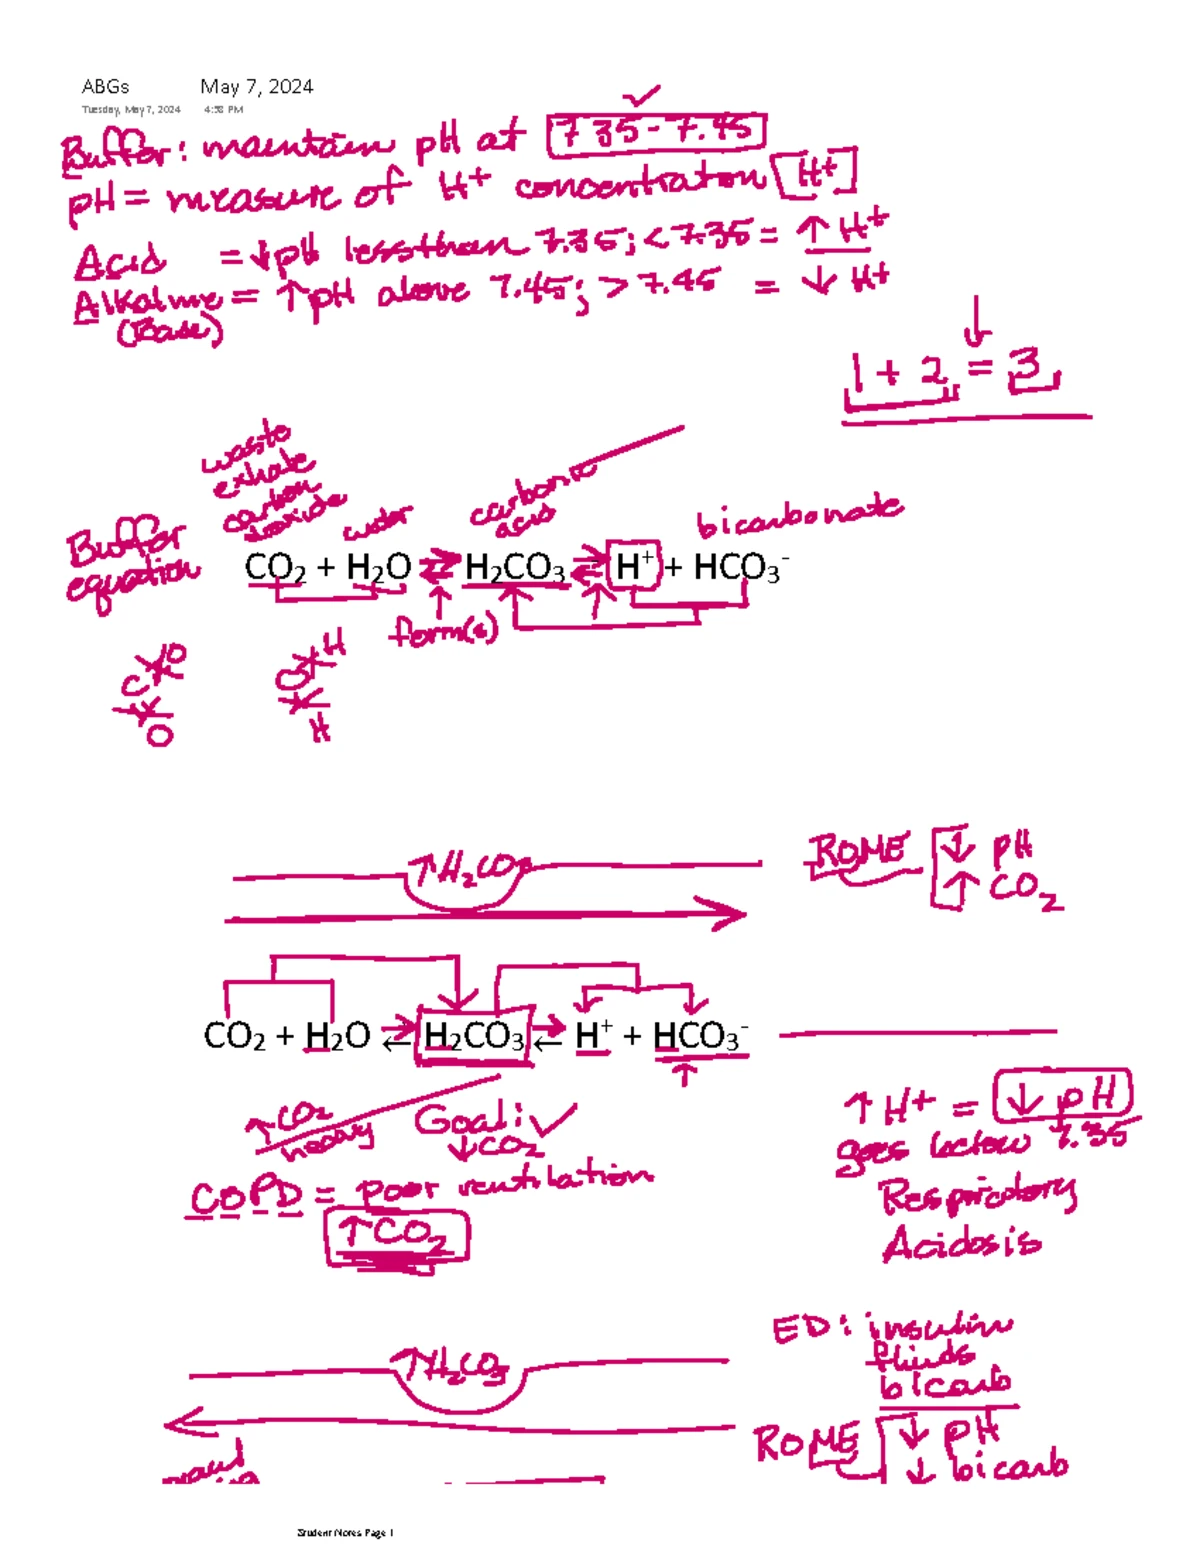 ABGs May 7, 2024
Tuesday, May 7, 2024 4:58 PM
Buffer: maintain pH at 7.35-7.45
pH = measure of H+ concentration [H+]
Acid = ↓pH less than 7.35; <7.35 = ↑ H+
Alkaline = ↑pH above 7.45; >7.45 = ↓ H+
(Base)
1 + 2 = 3
waste
exhale
carbon
dioxide
water
carbonic
acid
bicarbonate
Buffer
equation
CO2 + H2O ⇄ H2CO3 ⇄ H+ + HCO3-
form(s)
O
C
O
H
O
H
↑H2CO3
ROME ↓ pH
↑ CO2
CO2 + H2O ⇄ H2CO3 ⇄ H+ + HCO3-
↑CO2
heavy
Goal: ✓
↓CO2
↑ H+ = ↓ pH
goes below 7.35
Respiratory
Acidosis
COPD = poor ventilation
↑CO2
ED: insulin
fluids
bicarb
↑H2CO3
ROME ↓ pH
↓ bicarb
Student Notes Page 1